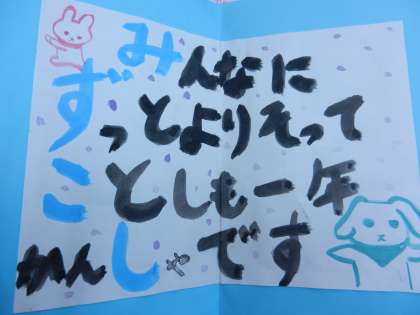 みんなに
ずっとよりそって
ことしも一年
かんしゃです